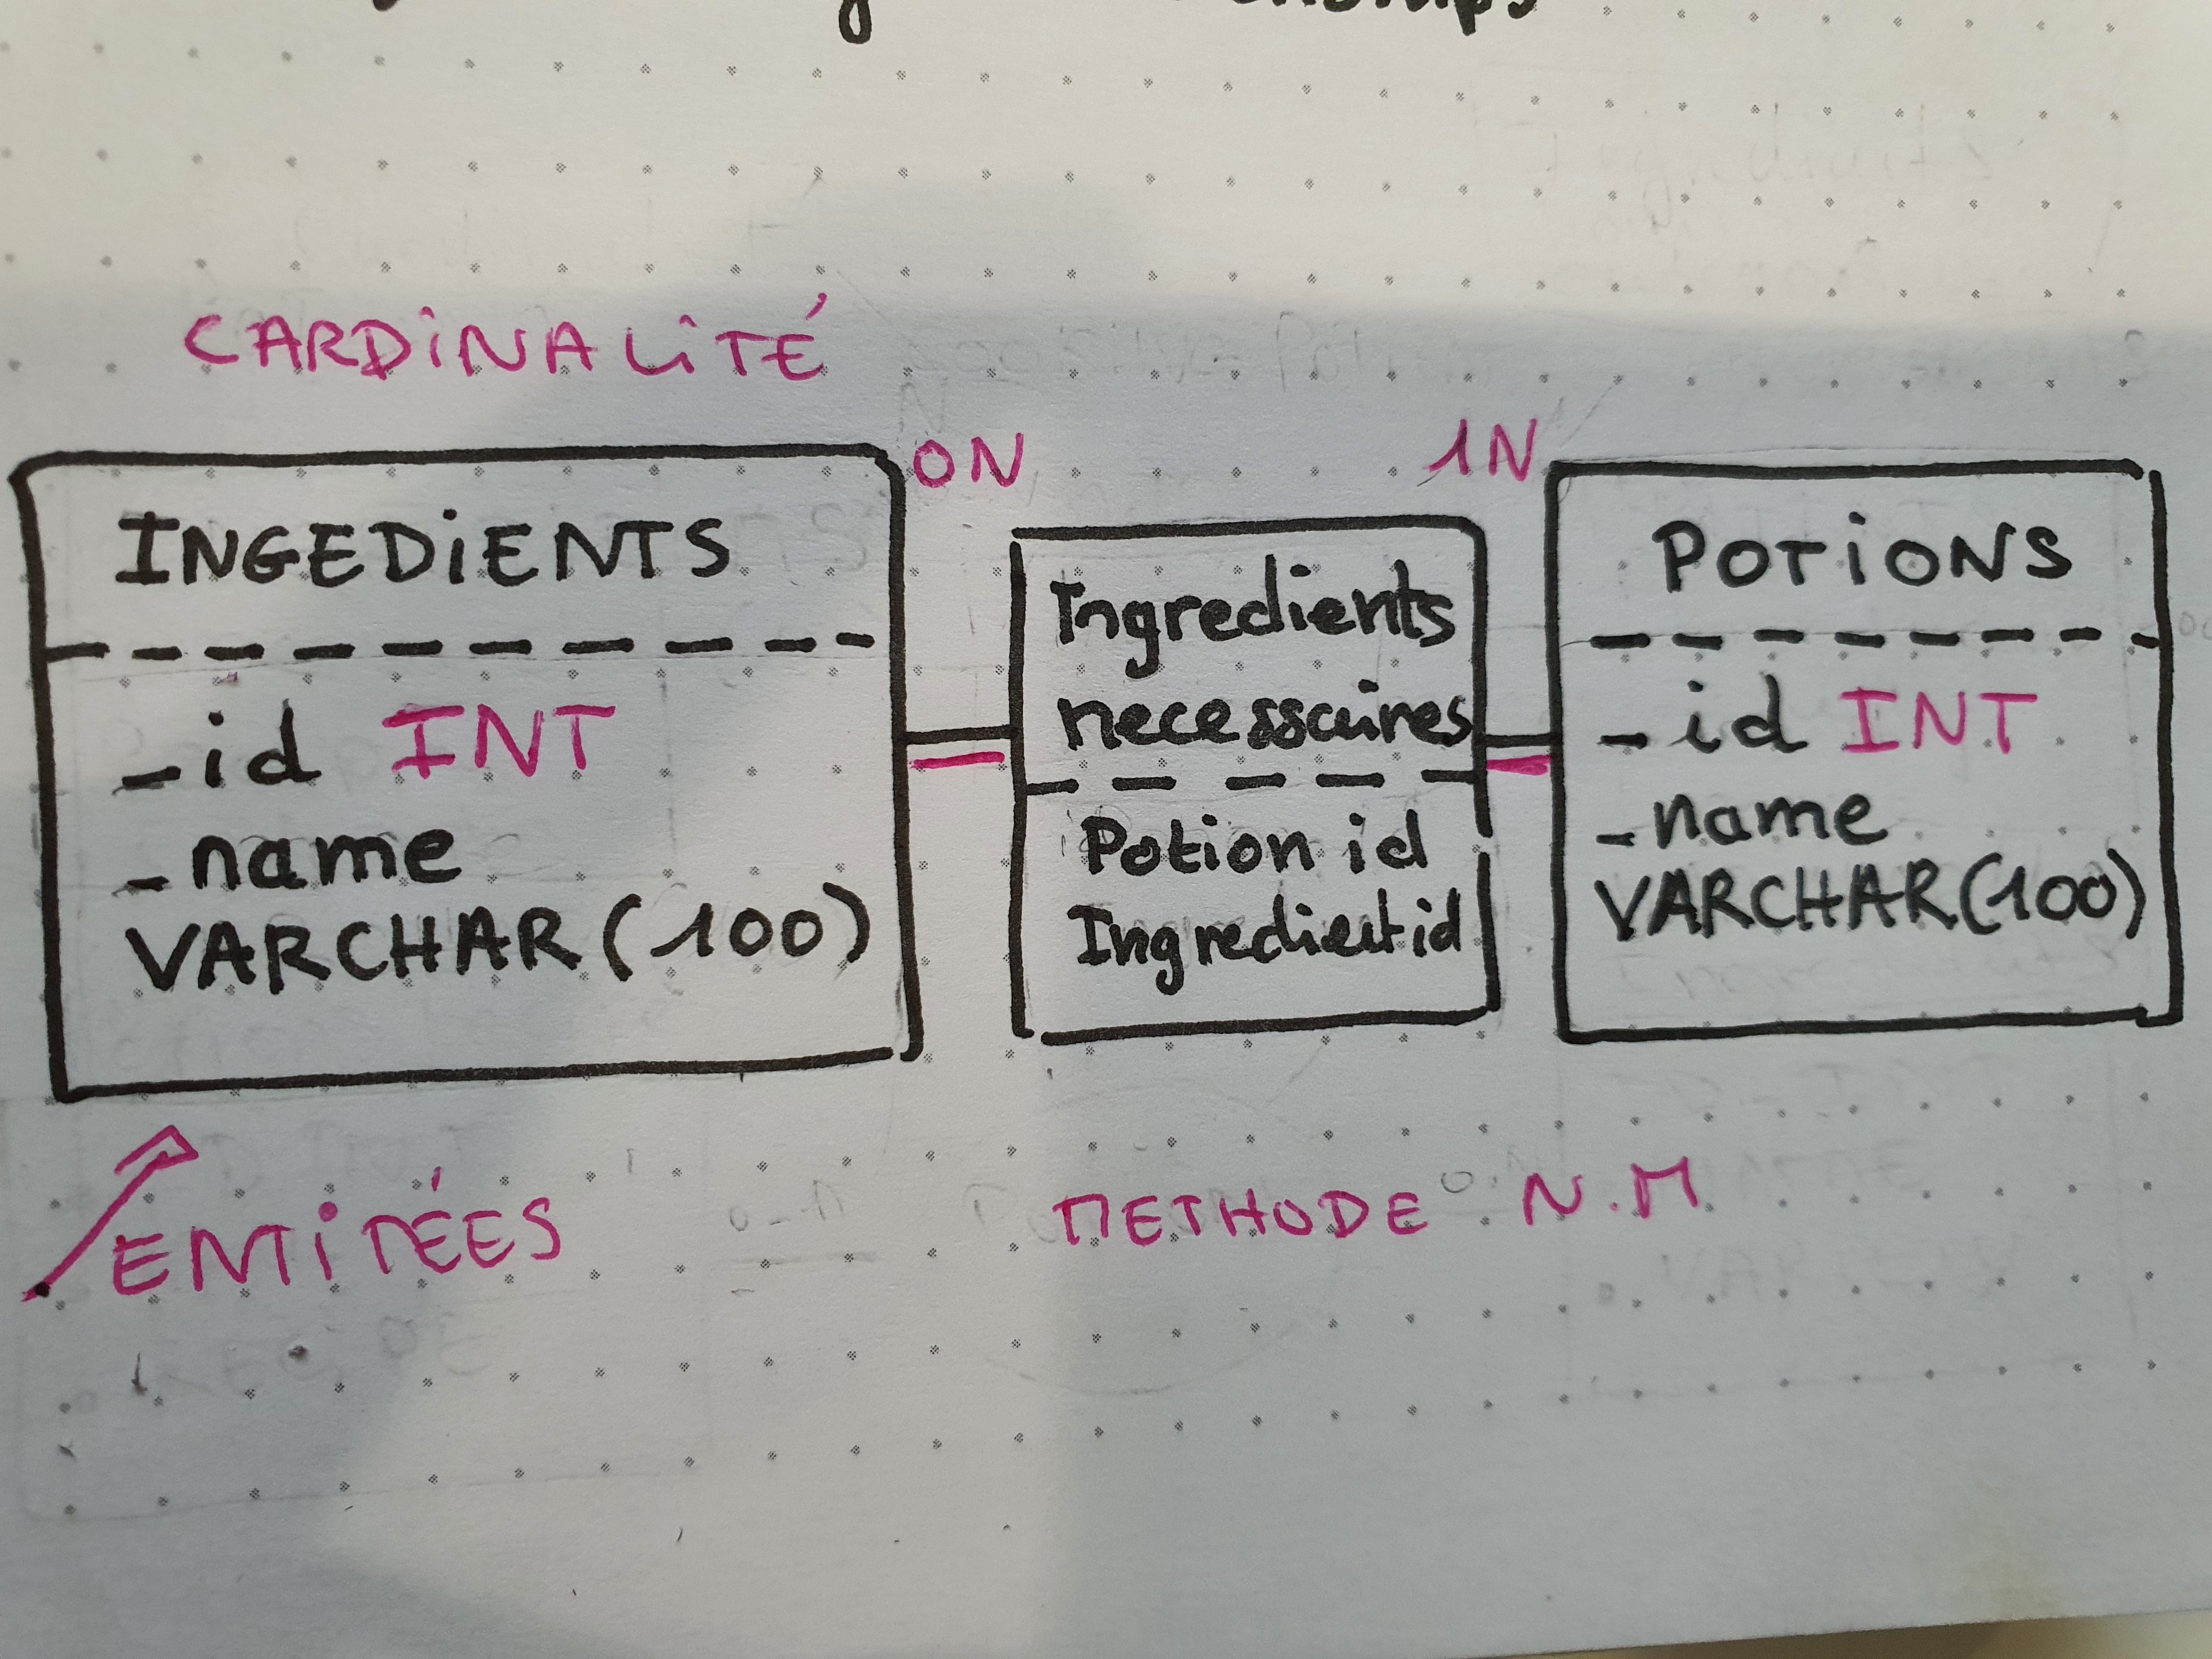 CARDINALITÉ
0N
1N
INGEDIENTS
_id INT
_name
VARCHAR(100)
Ingredients
necessaires
Potion id
Ingredient id
POTIONS
_id INT
_name
VARCHAR(100)
ENTITÉES
METHODE N.M